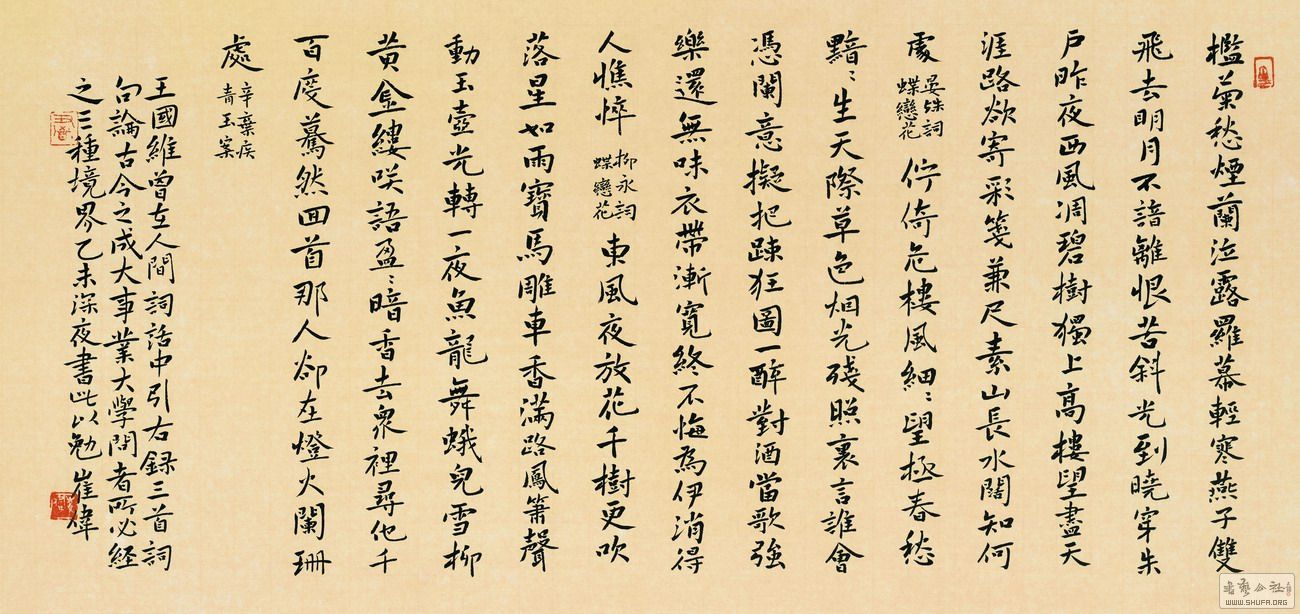 檻菊愁煙蘭泣露羅幕輕寒燕子雙
飛去明月不諳離恨苦斜光到曉穿朱
戶昨夜西風凋碧樹獨上高樓望盡天
涯路欲寄彩箋兼尺素山長水闊知何
處
晏殊詞
蝶戀花
佇倚危樓風細〻望極春愁
黯〻生天際草色烟光殘照裏言誰會
憑闌意擬把踈狂圖一醉對酒當歌強
樂還無味衣帶漸寬終不悔為伊消得
人憔悴
柳永詞
蝶戀花
東風夜放花千樹更吹
落星如雨寶馬雕車香滿路鳳簫聲
動玉壺光轉一夜魚龍舞蛾兒雪柳
黃金縷咲語盈〻暗香去眾裡尋他千
百度驀然回首那人卻在燈火闌珊
處
辛棄疾
青玉案
王國維曾在人間詞話中引右録三首詞
句論古今之成大事業大學問者所必經
之三種境界乙未深夜書此以勉崔偉
WWW.SHUFA.ORG